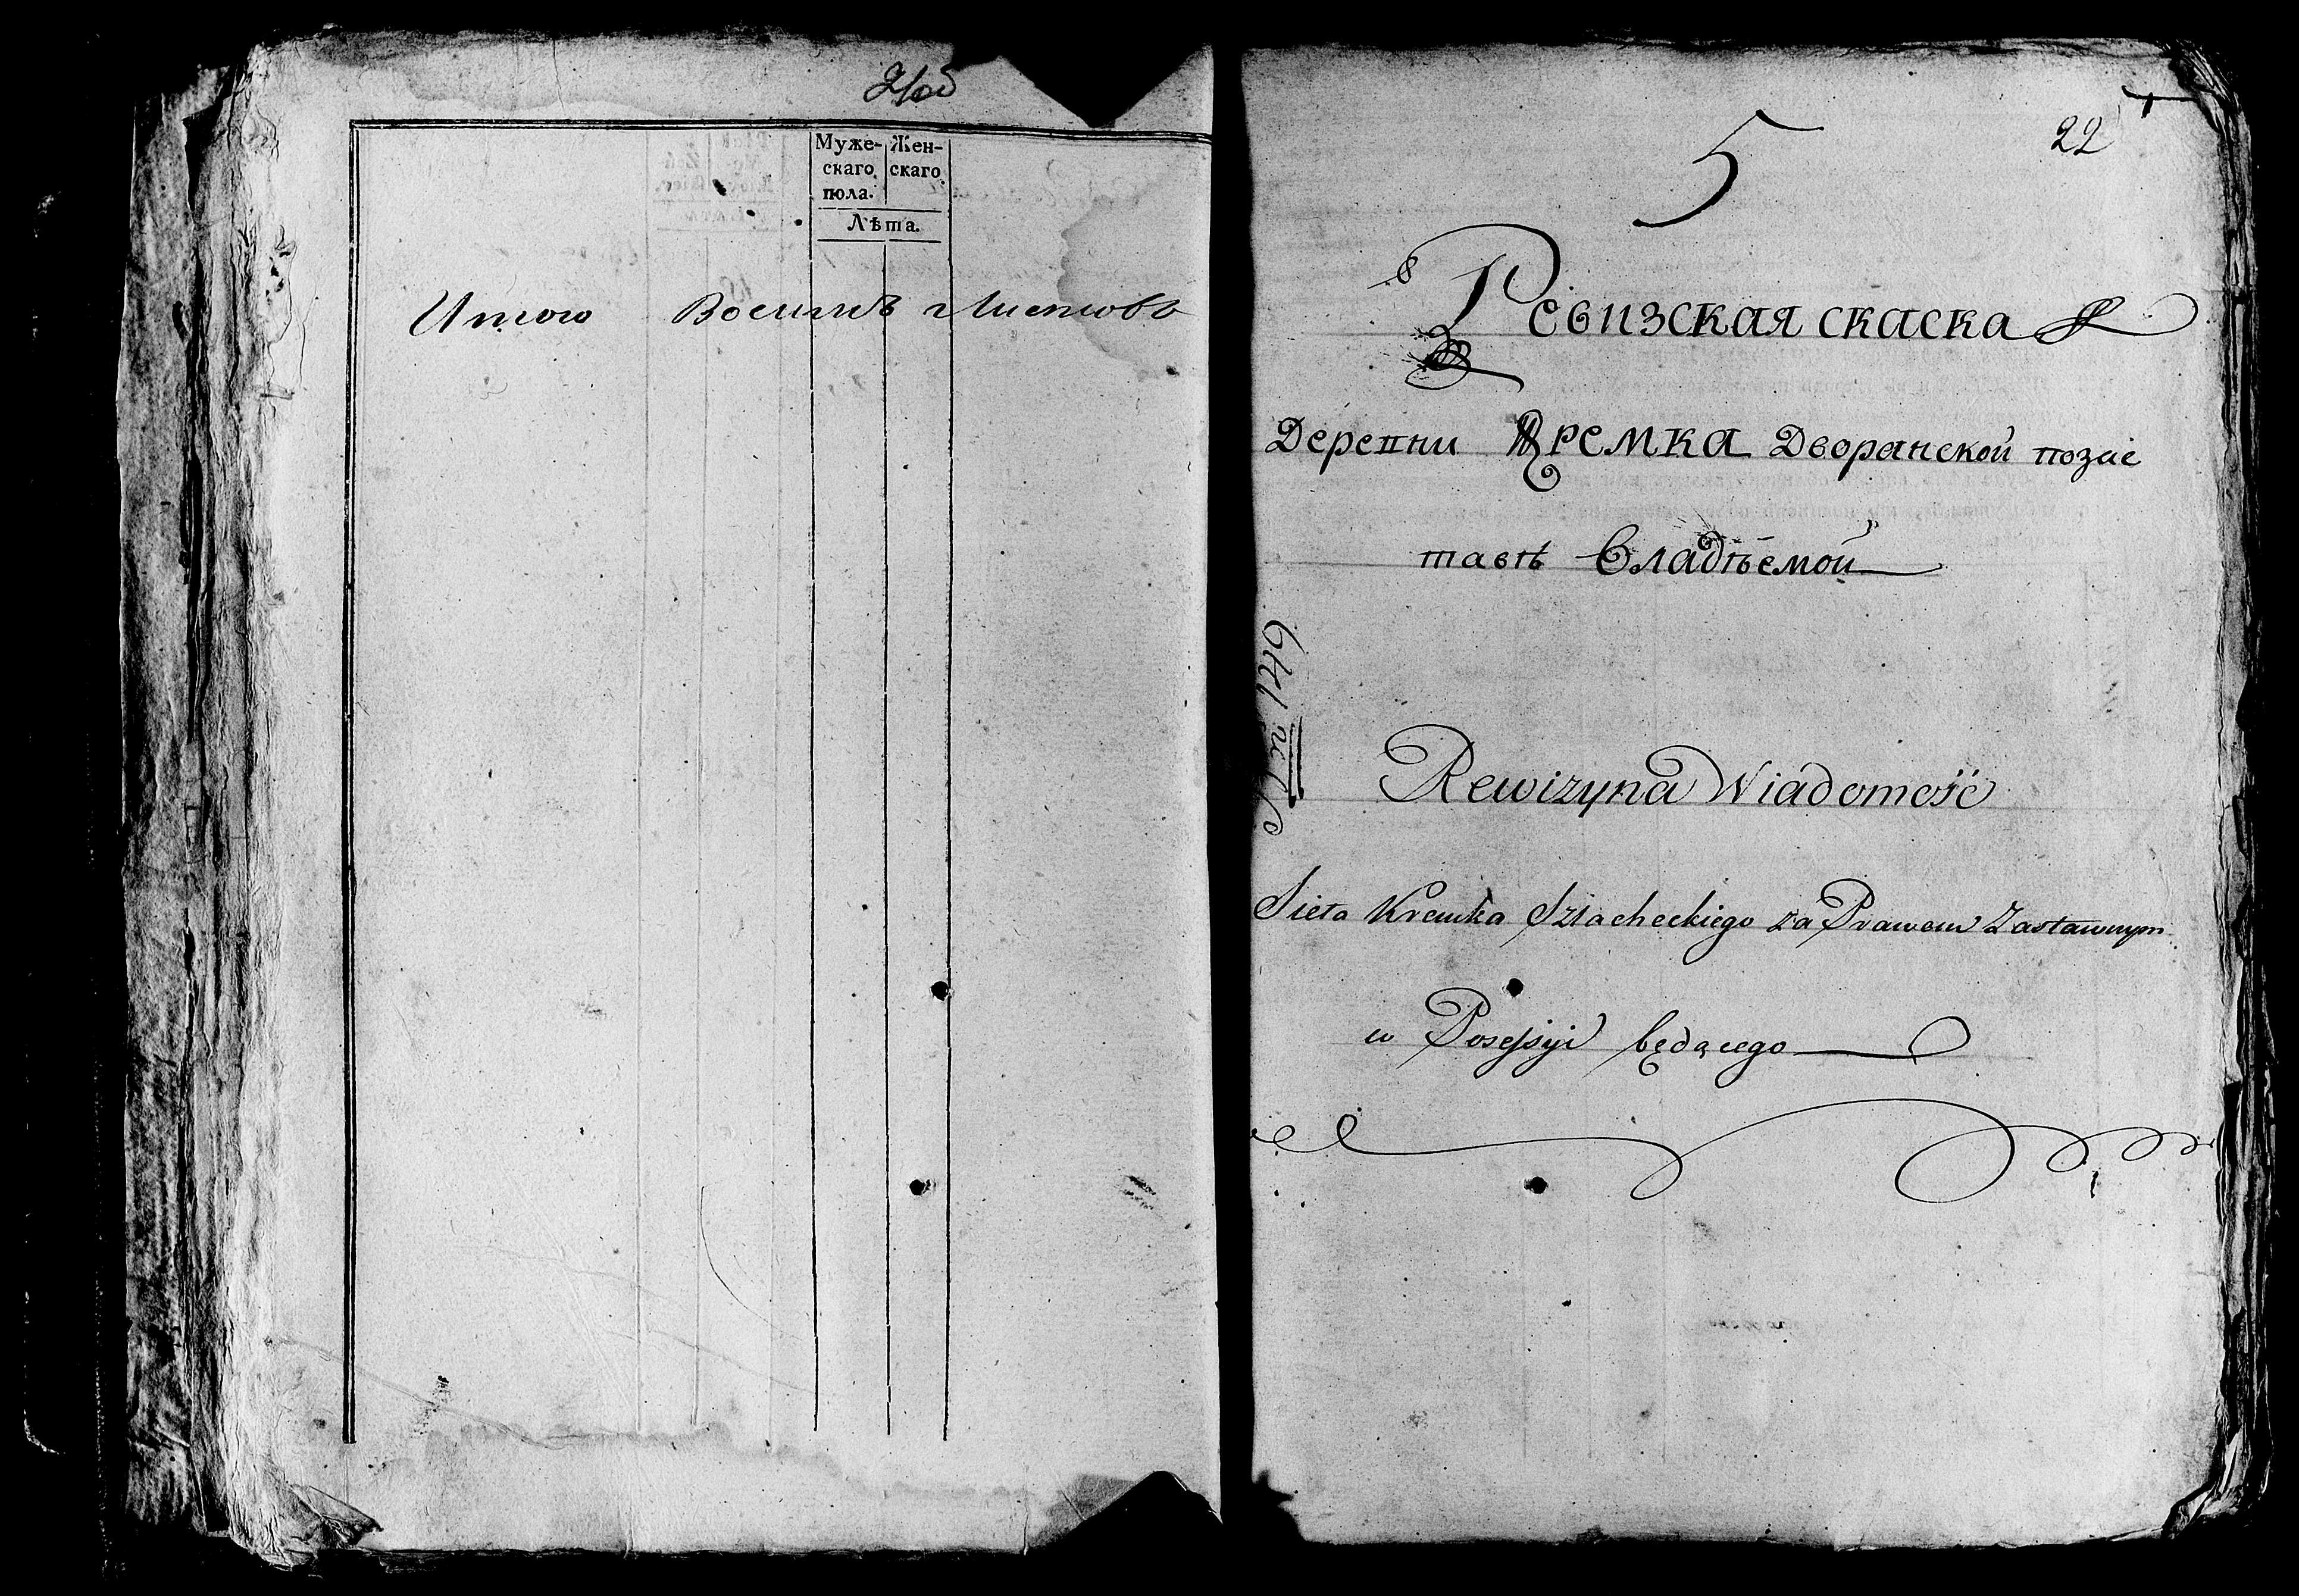 21об
Муже- Жен-
скаго скаго
пола.
Лѣта.
Итого Восемь Листовъ
22
5
Ревизская скаска
Деревни Кремка Дворанской позас
тавѣ владѣемой
Rewizyna Wiadomość
Sieła Kremka Szłacheckiego za Prawem Zastawnym
w Posessyi będącego